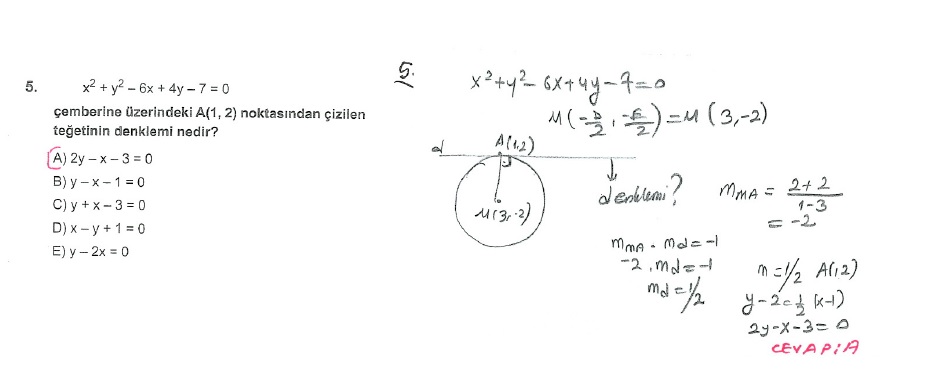 5. x² + y² – 6x + 4y – 7 = 0
çemberine üzerindeki A(1, 2) noktasından çizilen
teğetinin denklemi nedir?
A) 2y – x – 3 = 0
B) y – x – 1 = 0
C) y + x – 3 = 0
D) x – y + 1 = 0
E) y – 2x = 0
5.
x²+y²-6x+4y-7=0
M(-D/2, -E/2)=M(3,-2)
d
A(1,2)
M(3,-2)
denklemi?
mMA = 2+2/1-3
= -2
mMA . md=-1
-2 . md=-1
md=1/2
m=1/2 A(1,2)
y-2=1/2(x-1)
2y-x-3=0
CEVAP:A